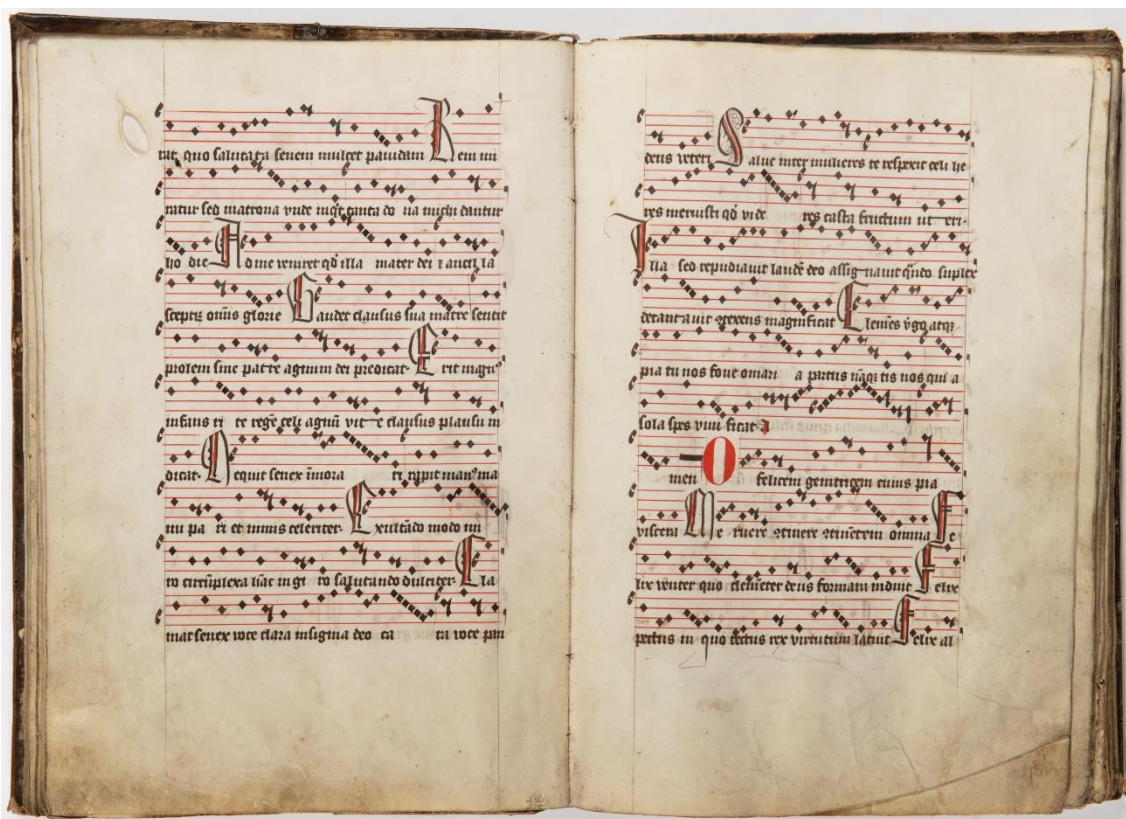 rat quo salutata senem mulcet pavidam Rem mi
ratur sed matrona unde inqt tanta do na michi dantur
ho die Ad me veniret qd illa mater dei z ancil la
sceptq omis glorie Gaudet clausus sua matre sentit
prolem sine patre agnum dei predicat Erit magn9
infans ti te rege celi agnu vit e clausus plausu in
dicat Nequit senex imora ri rapit man9 ma
nu pa ri et nimis celeriter Exultado modo mi
ro circuplexa hac in gi ro salutando dulciter Cla
mat senex voce clara insignia deo ca ra voce pan
deus veteri Salve inter mulieres te respexit celi he
res meruisti qd vide res casta fructum ut eri
Illa sed repudiavit laude deo assignavit qndo suplex
decantavit retexens magnificat Clemes vgo atq
pia tu nos fove omari a partus naq tis nos qui a
sola spes vivi ficat A
men O felicem genitricem cuius pia
viscera Me ruere stinere stinetem omnia Fe
lix venter quo clemeter deus formam induit Felix
pectus in quo tectus rex virtutum latuit Felix al